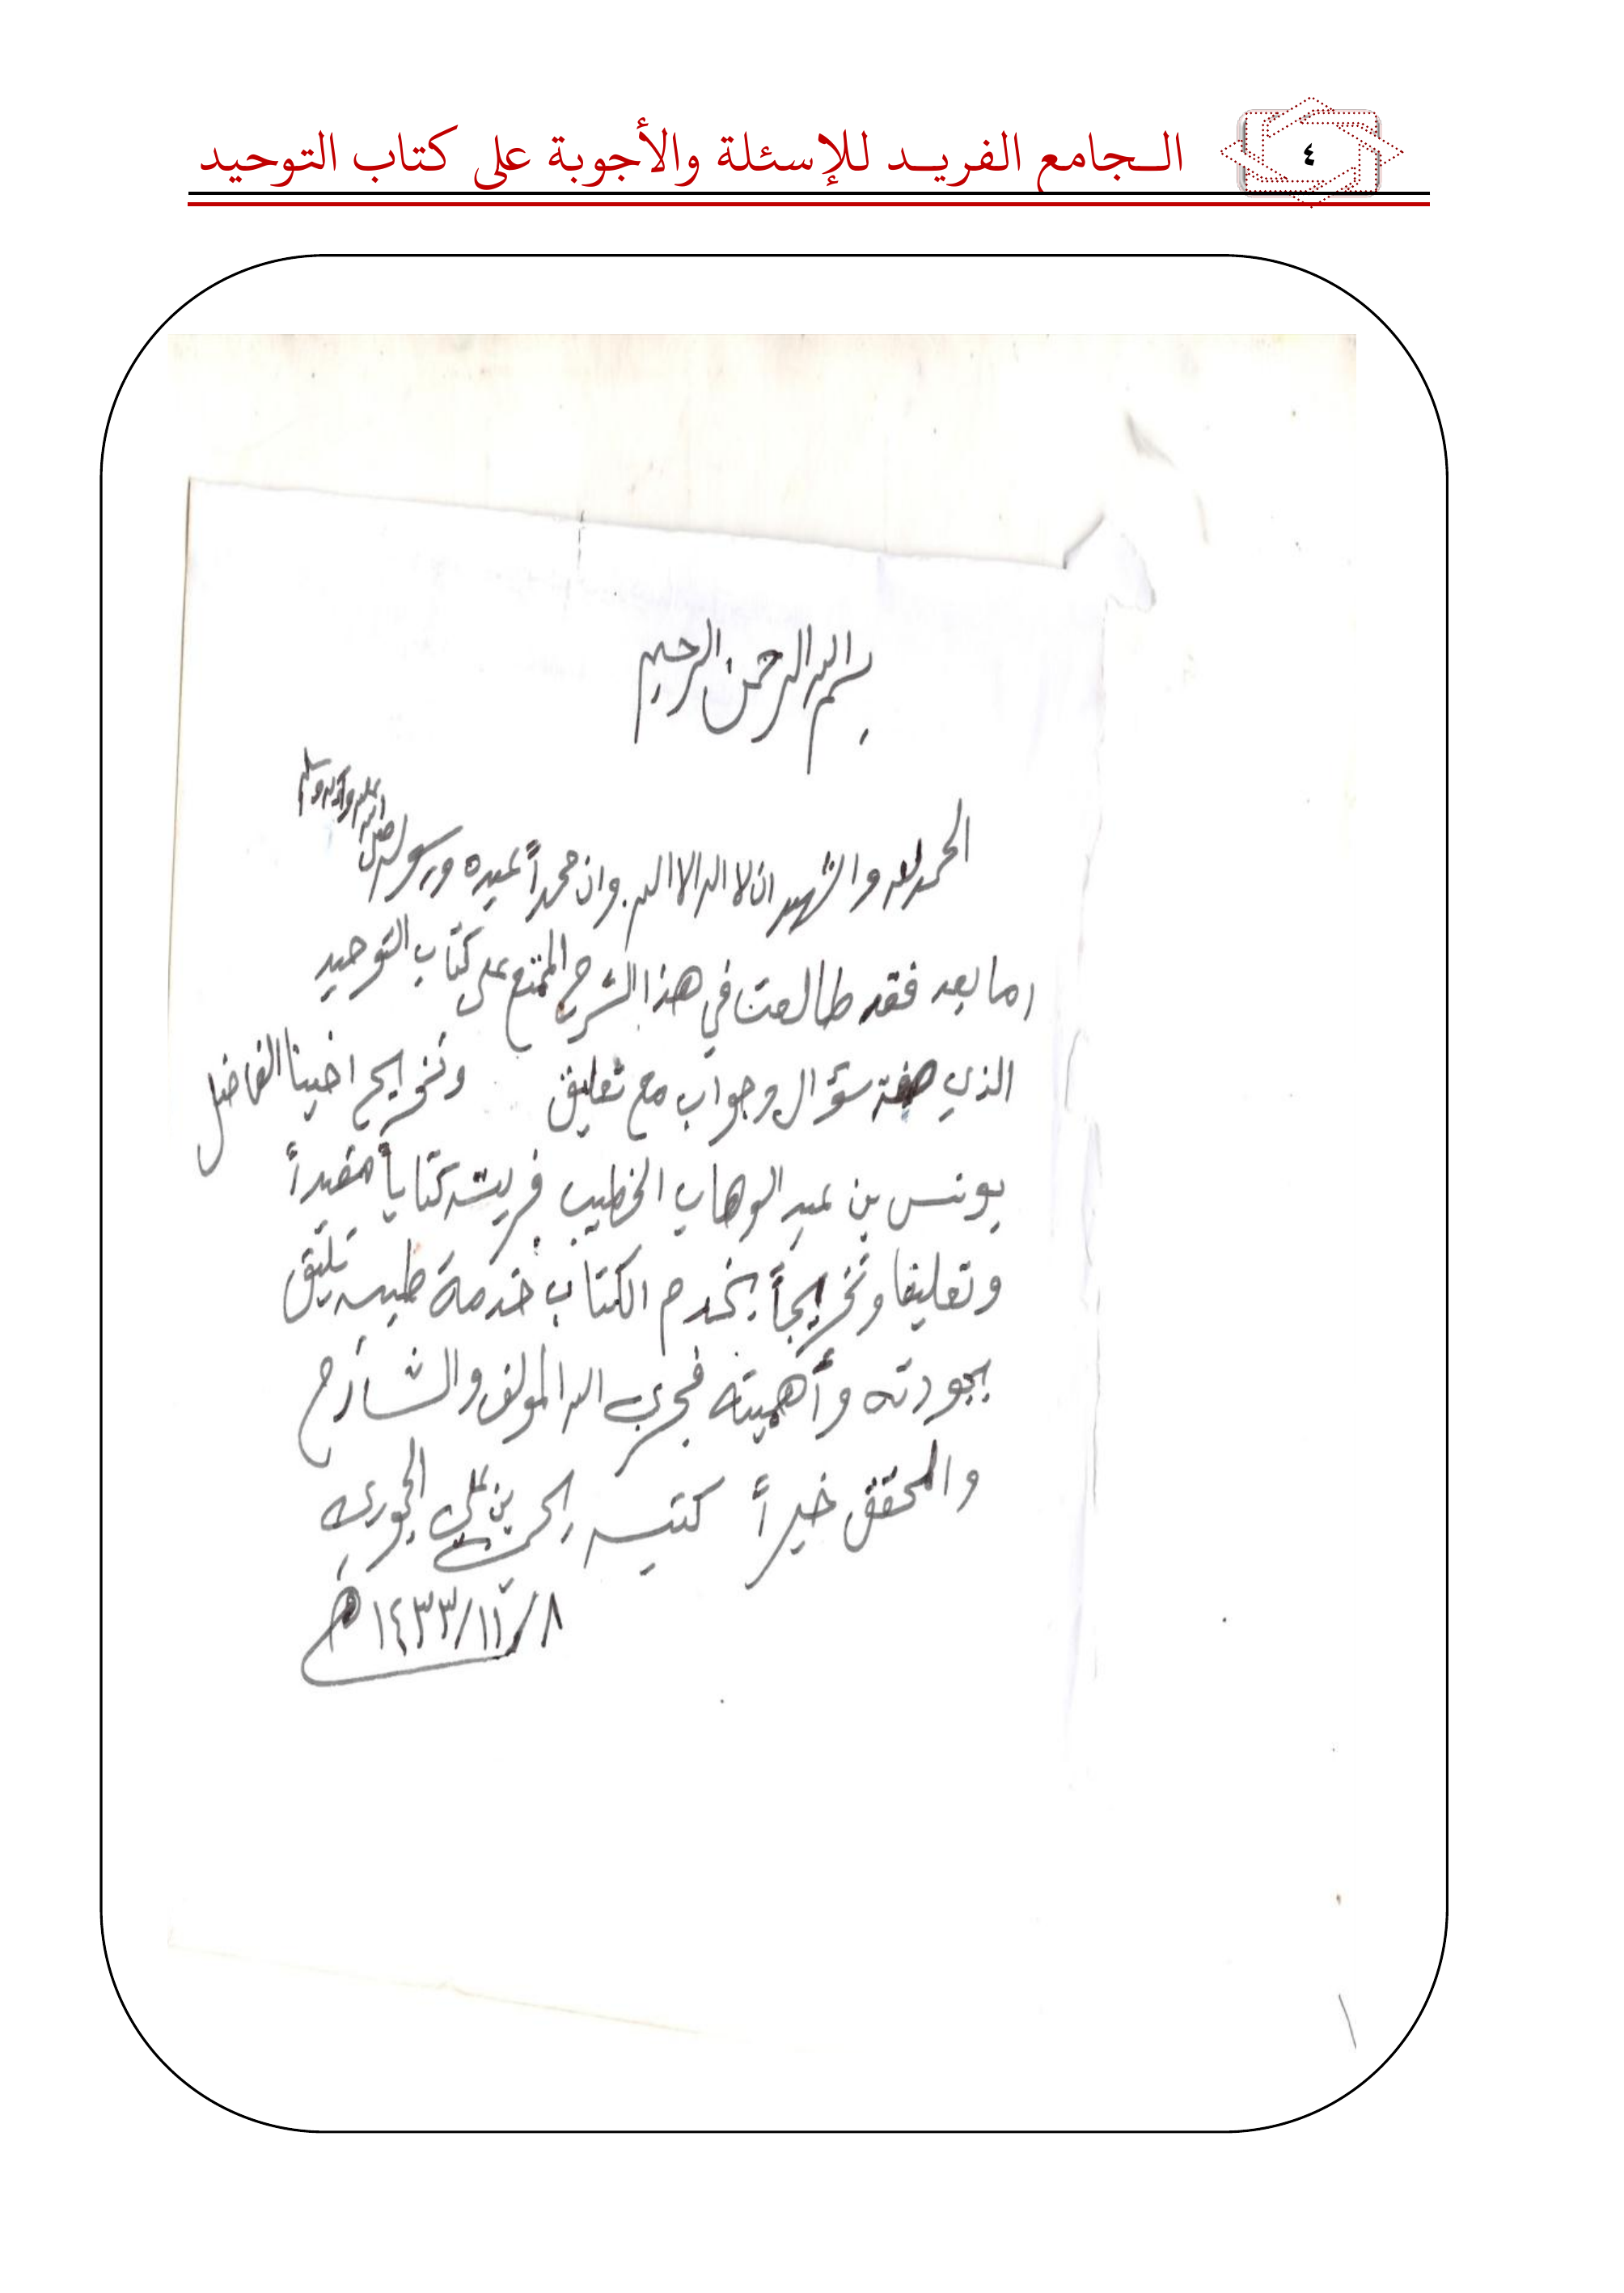 الـجامع الفريـد للإسئلة والأجوبة على كتاب التوحيد
٤
بسم الله الرحمن الرحيم
الحمد لله واشهد ان لا اله الا الله وان محمداً عبده ورسوله صلى الله عليه وآله وسلم
اما بعد فقد طالعت في هذا الشرح الممتع على كتاب التوحيد
الذي صفته سؤال وجواب مع تعليق وتخريج اخينا الفاضل
يونس بن عبد الوهاب الخطيب فرأيته كتاباً مفيداً
وتعليقا وتخريجاً يخدم الكتاب خدمة طيبه تليق
بجودته وأهميته فجزى الله المؤلف والشارح
والمحقق خيراً كتبه يحيى بن علي الحجوري
٨/١١/١٤٣٣هـ